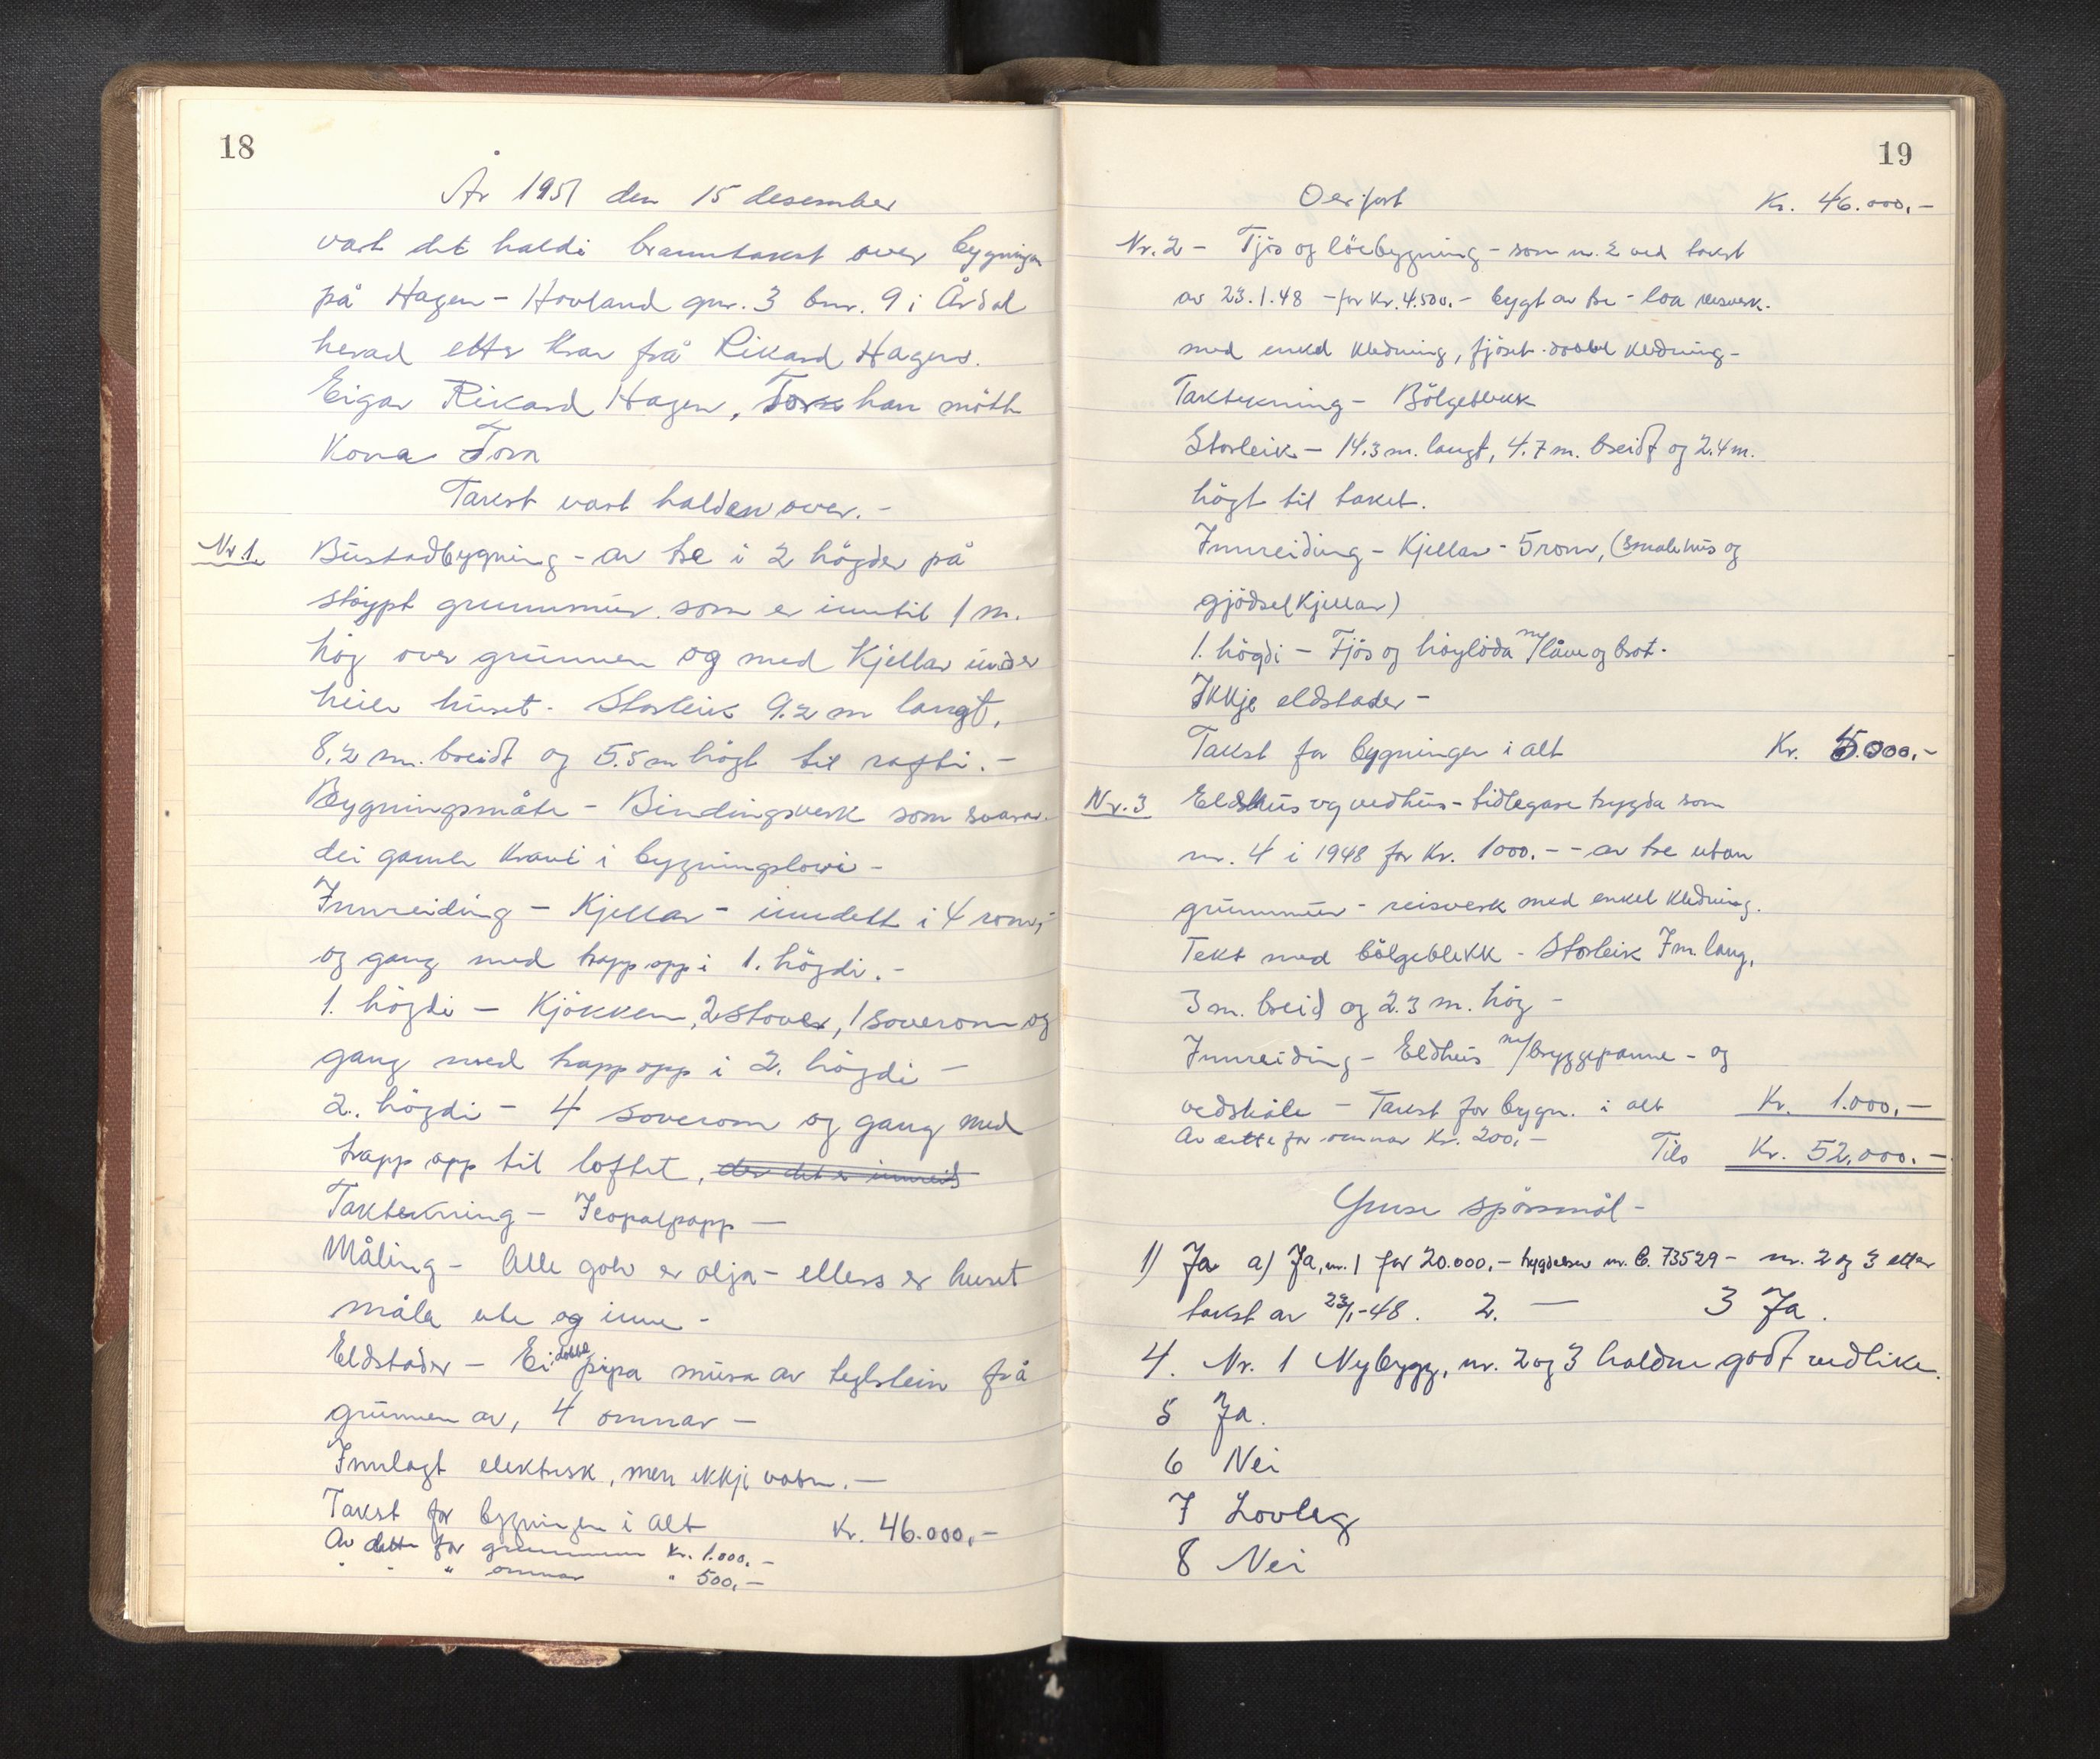 18
År 1951 den 15 desember
vart det haldi branntakst over bygningen
på Hagen - Hovland gnr. 3 bnr. 9 i Årdal
herad etter krav frå Rikard Hagen.
Eigar Rikard Hagen, Tora han møtte
Kona Tora
Takst vart halden over. -
Nr 1. Bustadbygning - av tre i 2 högder på
stöypt grunnmur som er inntil 1 m.
hög over grunnen og med Kjellar under
heile huset - Storleik 9.2 m langt,
8,2 m. breidt og 5.5 m högt til rafti. -
Bygningsmåte - Bindingsverk som svarar
dei gamle Kravi i bygningslovi -
Innreiding - Kjellar - inndelt i 4 rom, -
og gang med trapp opp i 1. högdi. -
1. högdi - Kjökken, 2 stover, 1 soverom og
gang med trapp opp i 2. högdi -
2. högdi - 4 soverom og gang med
trapp opp til loftet, der det er innreid
Taktekning - Icopalpapp -
Måling - Alle golv er olja - ellers er huset
måla ute og inne -
Eldstader - Ei dobbel pipa mura av teglstein frå
grunnen av, 4 omnar -
Innlagt elektrisk, men ikkje vatn. -
Takst for bygningen i alt Kr. 46.000,-
Av dette for grunnmuren Kr. 1.000,-
" " " omnar " 500,-
19
Overfört Kr. 46.000,-
Nr. 2 - Fjös og löebygning - som nr. 2 ved takst
av 23.1.48 - for Kr. 4.500.- bygt av tre - loa reisverk.
med enkel kledning, fjöset dobbel kledning -
Taktekning - Bölgeblekk
Storleik - 14.3 m. langt, 4.7 m. breidt og 2.4 m.
högt til taket.
Innreiding - Kjellar - 5 rom, (smalehus og
gjödsel Kjellar)
1. högdi - Fjös og höylöda m/låve og brot.
Ikkje eldstader -
Takst for bygningen i alt Kr. 5.000,-
Nr. 3 Eldhus og vedhus - tidlegare trygda som
nr. 4 i 1948 for Kr. 1000.- - av tre utan
grunnmur - reisverk med enkel kledning.
Tekt med bölgeblekk - Storleik 7 m. lang,
3 m. breid og 2.3 m. hög -
Innreiding - Eldhus m/bryggepanne - og
vedskåle - Takst for bygn. i alt Kr. 1.000,-
Av dette for omnar Kr. 200,- Tils Kr. 52.000.-
Ymse spörsmål -
1) Ja a) Ja, nr. 1 for 20.000,- trygdebrev nr. B. 73529 - nr. 2 og 3 etter
takst av 23/1-48. 2. - 3 Ja.
4. Nr. 1 Nybygg, nr. 2 og 3 haldne godt vedlike.
5 Ja.
6 Nei
7 Lovleg
8 Nei